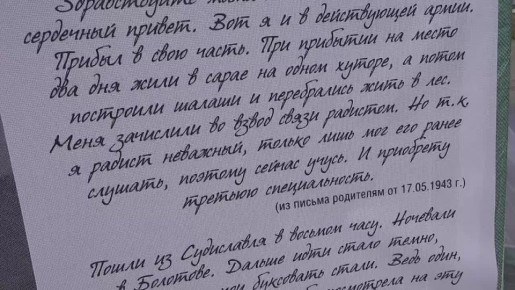 Здравствуйте
сердечный привет. Вот я и в действующей армии.
Прибыл в свою часть. При прибытии на место
два дня жили в сарае на одном хуторе, а потом
построили шалаши и перебрались жить в лес.
Меня зачислили во взвод связи радистом. Но т.к.
я радист неважный, только лишь мог его ранее
слушать, поэтому сейчас учусь. И приобрету
третьюю специальность.
(из письма родителям от 17.05.1943 г.)
Пошли из Судиславля в восьмом часу. Ночевали
в Болотове. Дальше идти стало темно,
буксовать стали. Ведь один,
посмотрела на эту